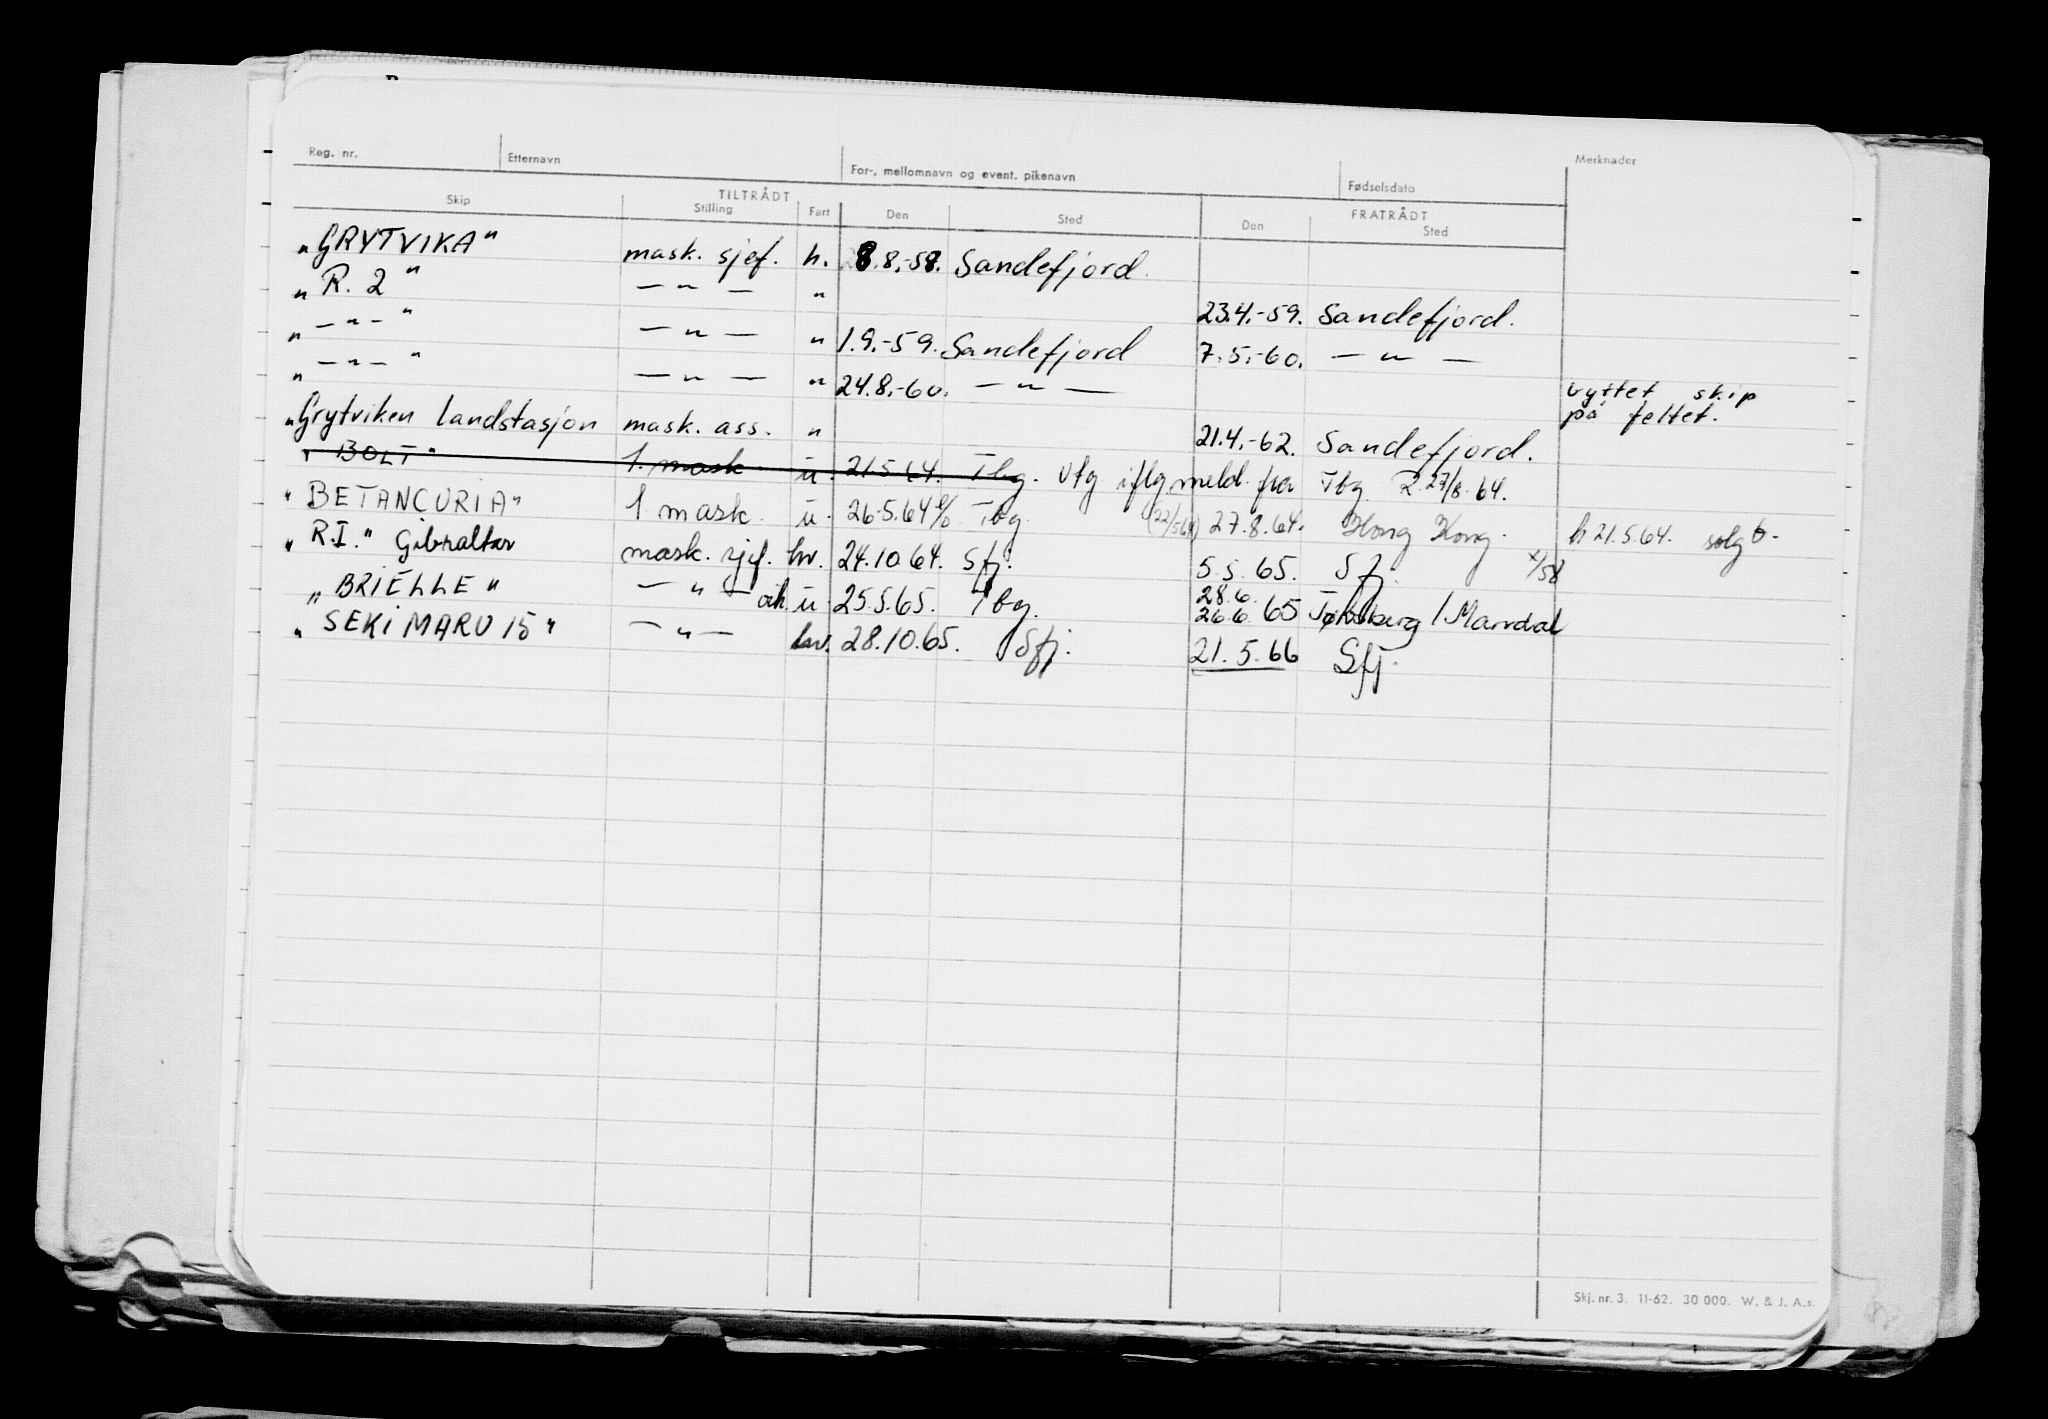 Reg. nr. Etternavn For-, mellomnavn og event. pikenavn Fødselsdato Merknader
TILTRÅDT FRATRÅDT
Skip Stilling Fart Den Sted Den Sted
"GRYTVIKA" mask. sjef. h. 8.8.-58. Sandefjord.
" R. 2 " — " — " 23.4.-59. Sandefjord.
" — " — " — " — " 1.9.-59. Sandefjord 7.5.-60. — " —
" — " — " — " — " 24.8.-60. — " — byttet skip
på feltet.
"Grytviken Landstasjon mask. ass. " 21.4.-62. Sandefjord.
"BOLT" 1. mask. u. 21.5.64. Tbg. Utg iflg. meld. fra Tbg R. 27/8.64.
"BETANCURIA" 1 mask. u. 26.5.64 Tbg. 27.8.64. Hong Kong. h 21.5.64. solgt.
"R.I." Gibraltar mask. sjef. hv. 24.10.64. Sfj. 5.5.65. Sfj.
"BRIELLE" — " — u. 25.5.65. Tbg. 28.6.
26.6.65 Tønsberg / Mandal
"SEKI MARU 15" — " — hv. 28.10.65. Sfj. 21.5.66 Sfj.
Skj. nr. 3. 11-62. 30 000. W. & J. A.s.